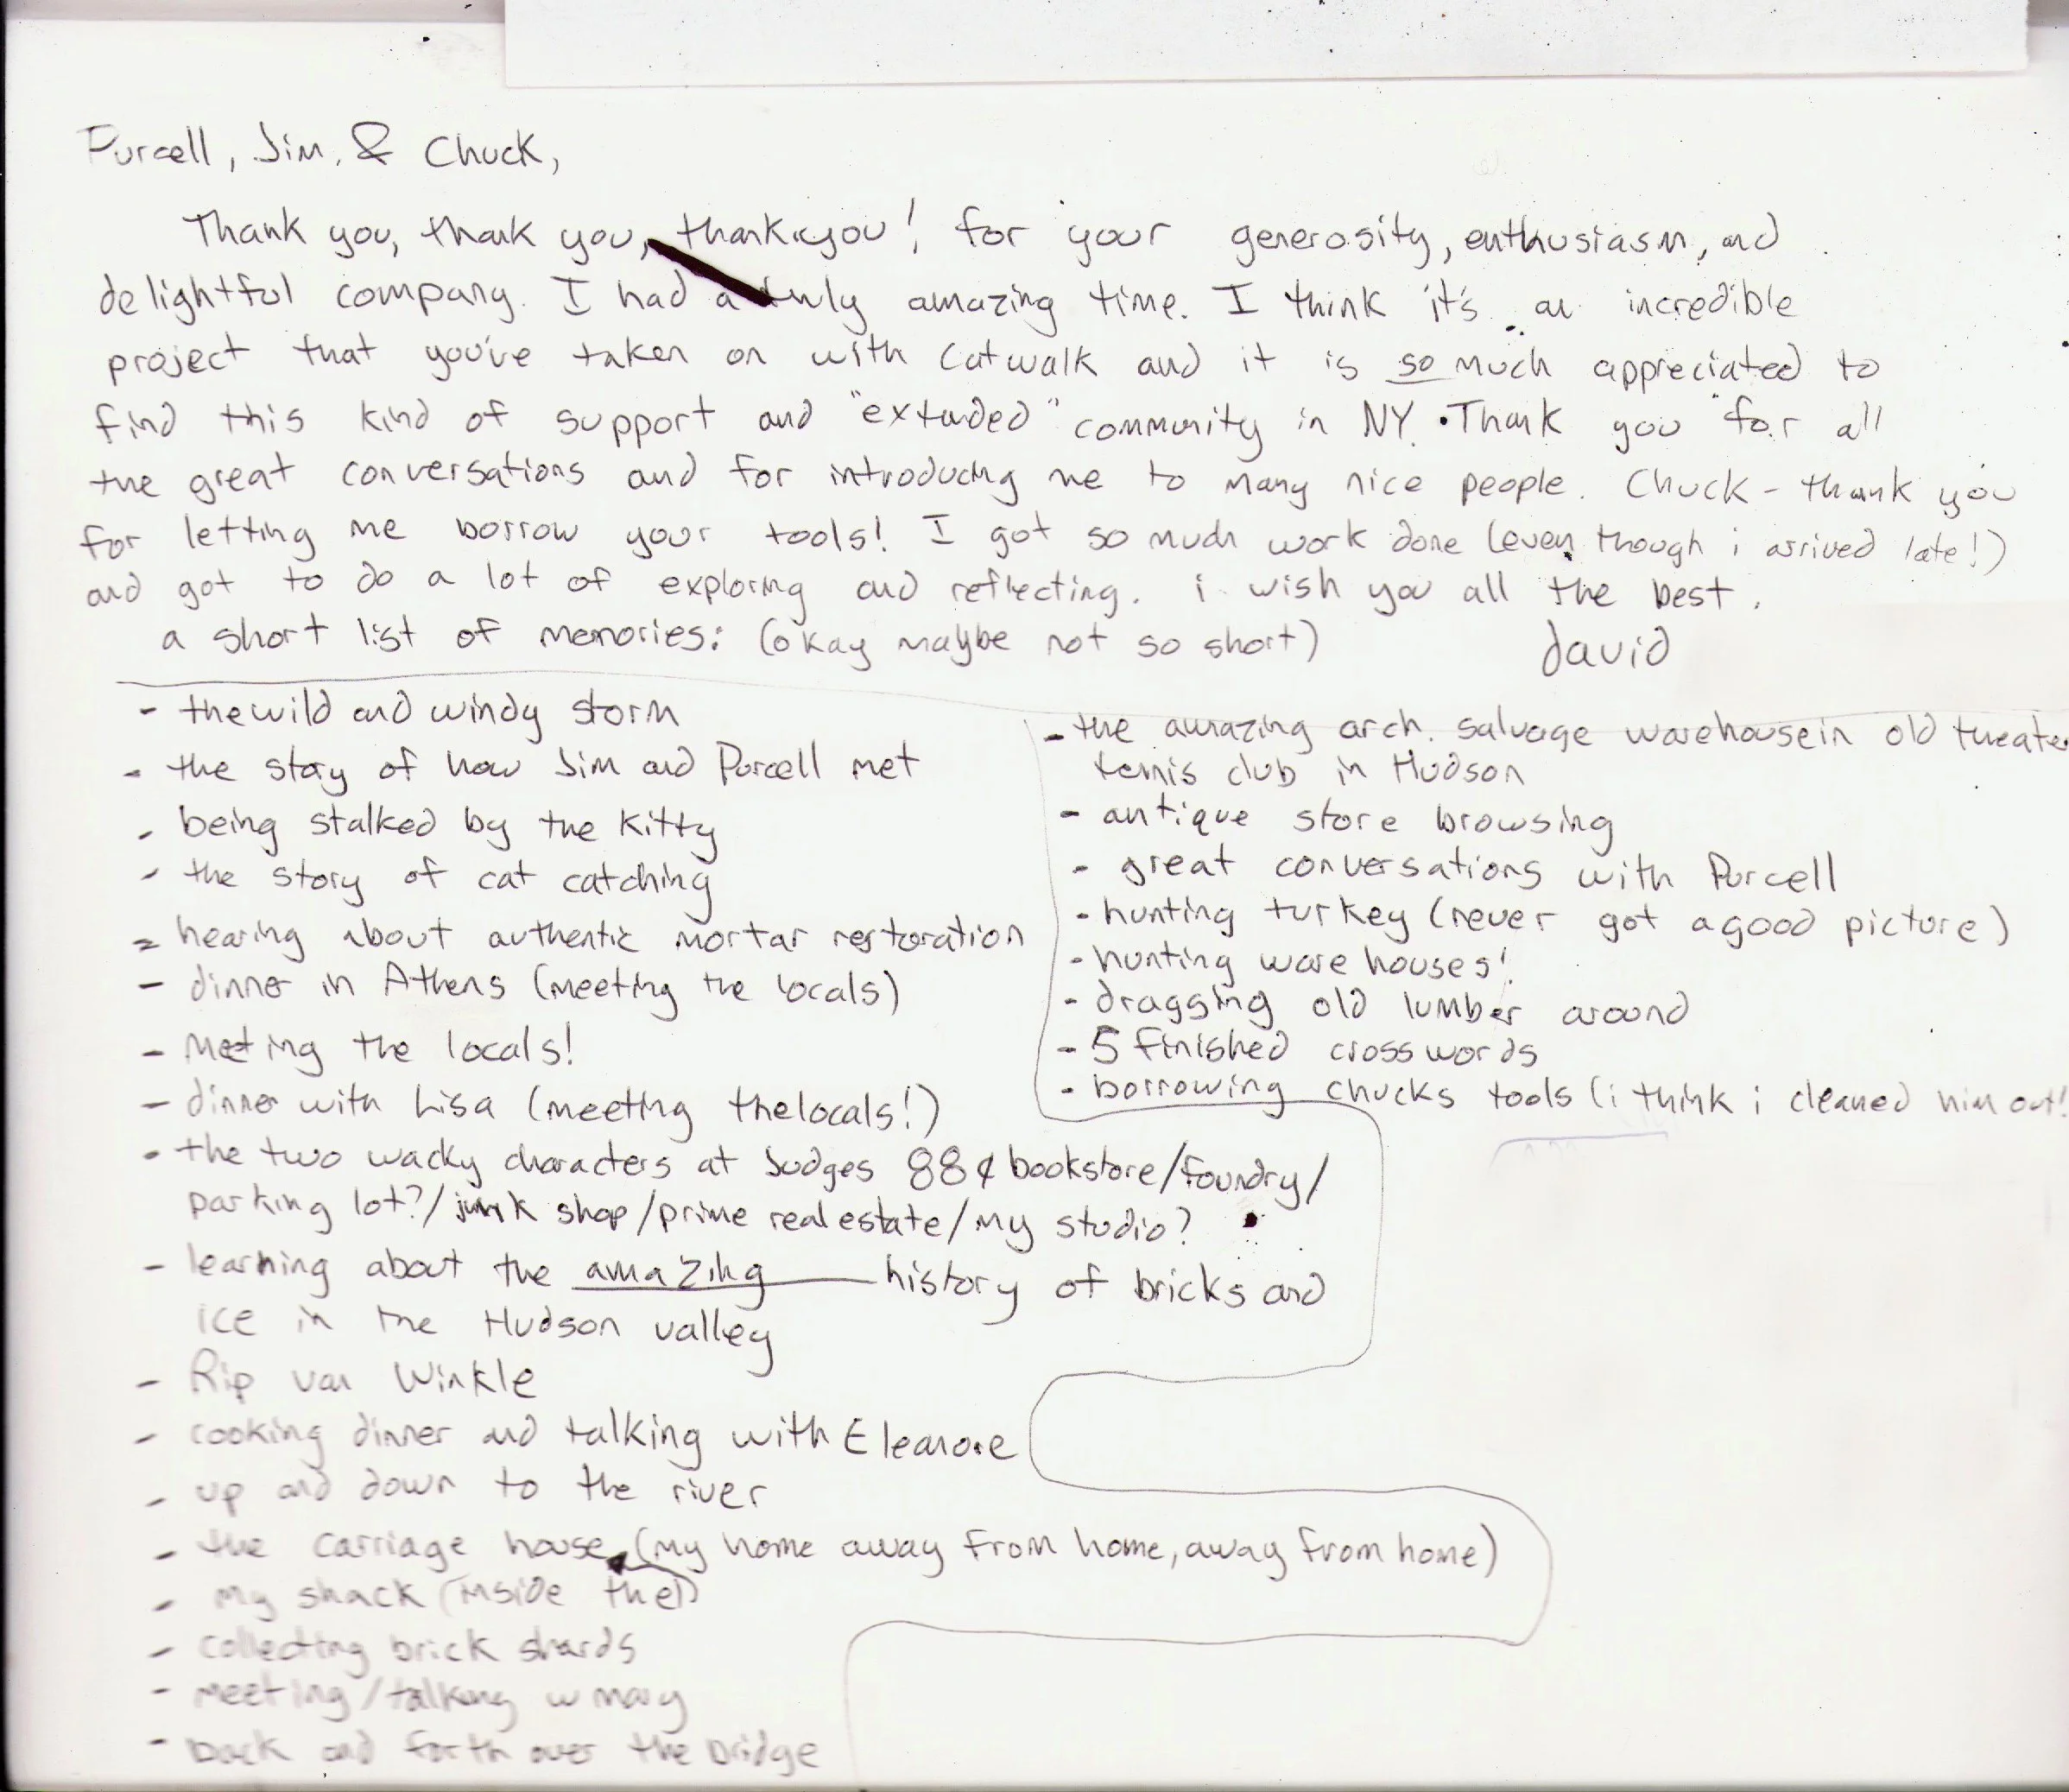 Purcell, Jim, & Chuck,
Thank you, thank you, thank you! for your generosity, enthusiasm, and
delightful company. I had a truly amazing time. I think it's an incredible
project that you've taken on with Catwalk and it is so much appreciated to
find this kind of support and "extended" community in NY. Thank you for all
the great conversations and for introducing me to many nice people. Chuck - thank you
for letting me borrow your tools! I got so much work done (even though i arrived late!)
and got to do a lot of exploring and reflecting. i wish you all the best.
a short list of memories: (okay maybe not so short)
david
- the wild and windy storm
- the story of how Jim and Purcell met
- being stalked by the kitty
- the story of cat catching
- hearing about authentic mortar restoration
- dinner in Athens (meeting the locals)
- meeting the locals!
- dinner with Lisa (meeting the locals!)
- the two wacky characters at Judges 88¢ bookstore/foundry/
parking lot?/junk shop/prime real estate/my studio?
- learning about the amazing history of bricks and
ice in the Hudson valley
- Rip van Winkle
- cooking dinner and talking with Eleanore
- up and down to the river
- the carriage house (my home away from home, away from home)
- my shack (inside the)
- collecting brick shards
- meeting/talking w mary
- back and forth over the bridge
- the amazing arch. salvage warehouse in old theater
tennis club in Hudson
- antique store browsing
- great conversations with Purcell
- hunting turkey (never got a good picture)
- hunting warehouses!
- dragging old lumber around
- 5 finished crosswords
- borrowing chucks tools (i think i cleaned him out!